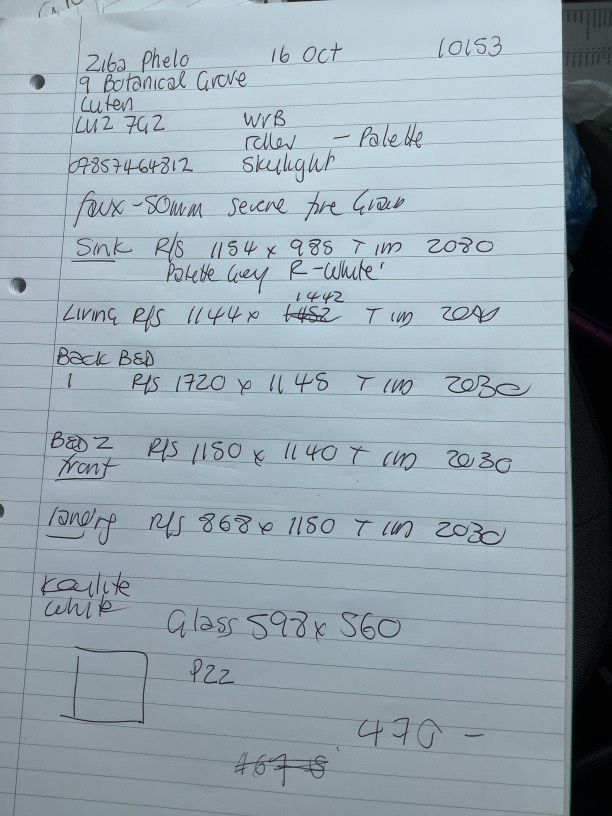 Ziba Phelo 16 Oct 10153
9 Botanical Grove
Luten
LU2 7G2 WVB
roller - Palette
07857464812 Skylight
faux - 50mm severe fire Group
Sink R/S 1154 x 985 T IM 2030
Palette Grey R-White
Living R/S 1144 x 1442 T IM 2030
Back BED
1 R/S 1720 x 1148 T IM 2030
BED 2 R/S 1150 x 1140 T IM 2030
front
landg R/S 868 x 1150 T IM 2030
Keylite
White
Glass 598 x 560
P22
470 -